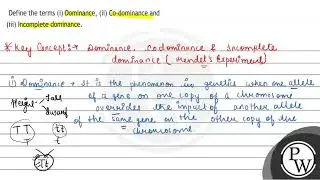 Define the terms (i) Dominance, (ii) Co-dominance and
(iii) Incomplete dominance.
* Key Concept :- Dominance, codominance & Incomplete
dominance (Mendel's Experiment)
(i) Dominance → It is the phenomenon in genetics when one allele
of a gene on one copy of a chromosome
overrides the impact of another allele
of the same gene on the other copy of the
chromosome
Height
Tall
dwarf
TT
tt
Tt
PW